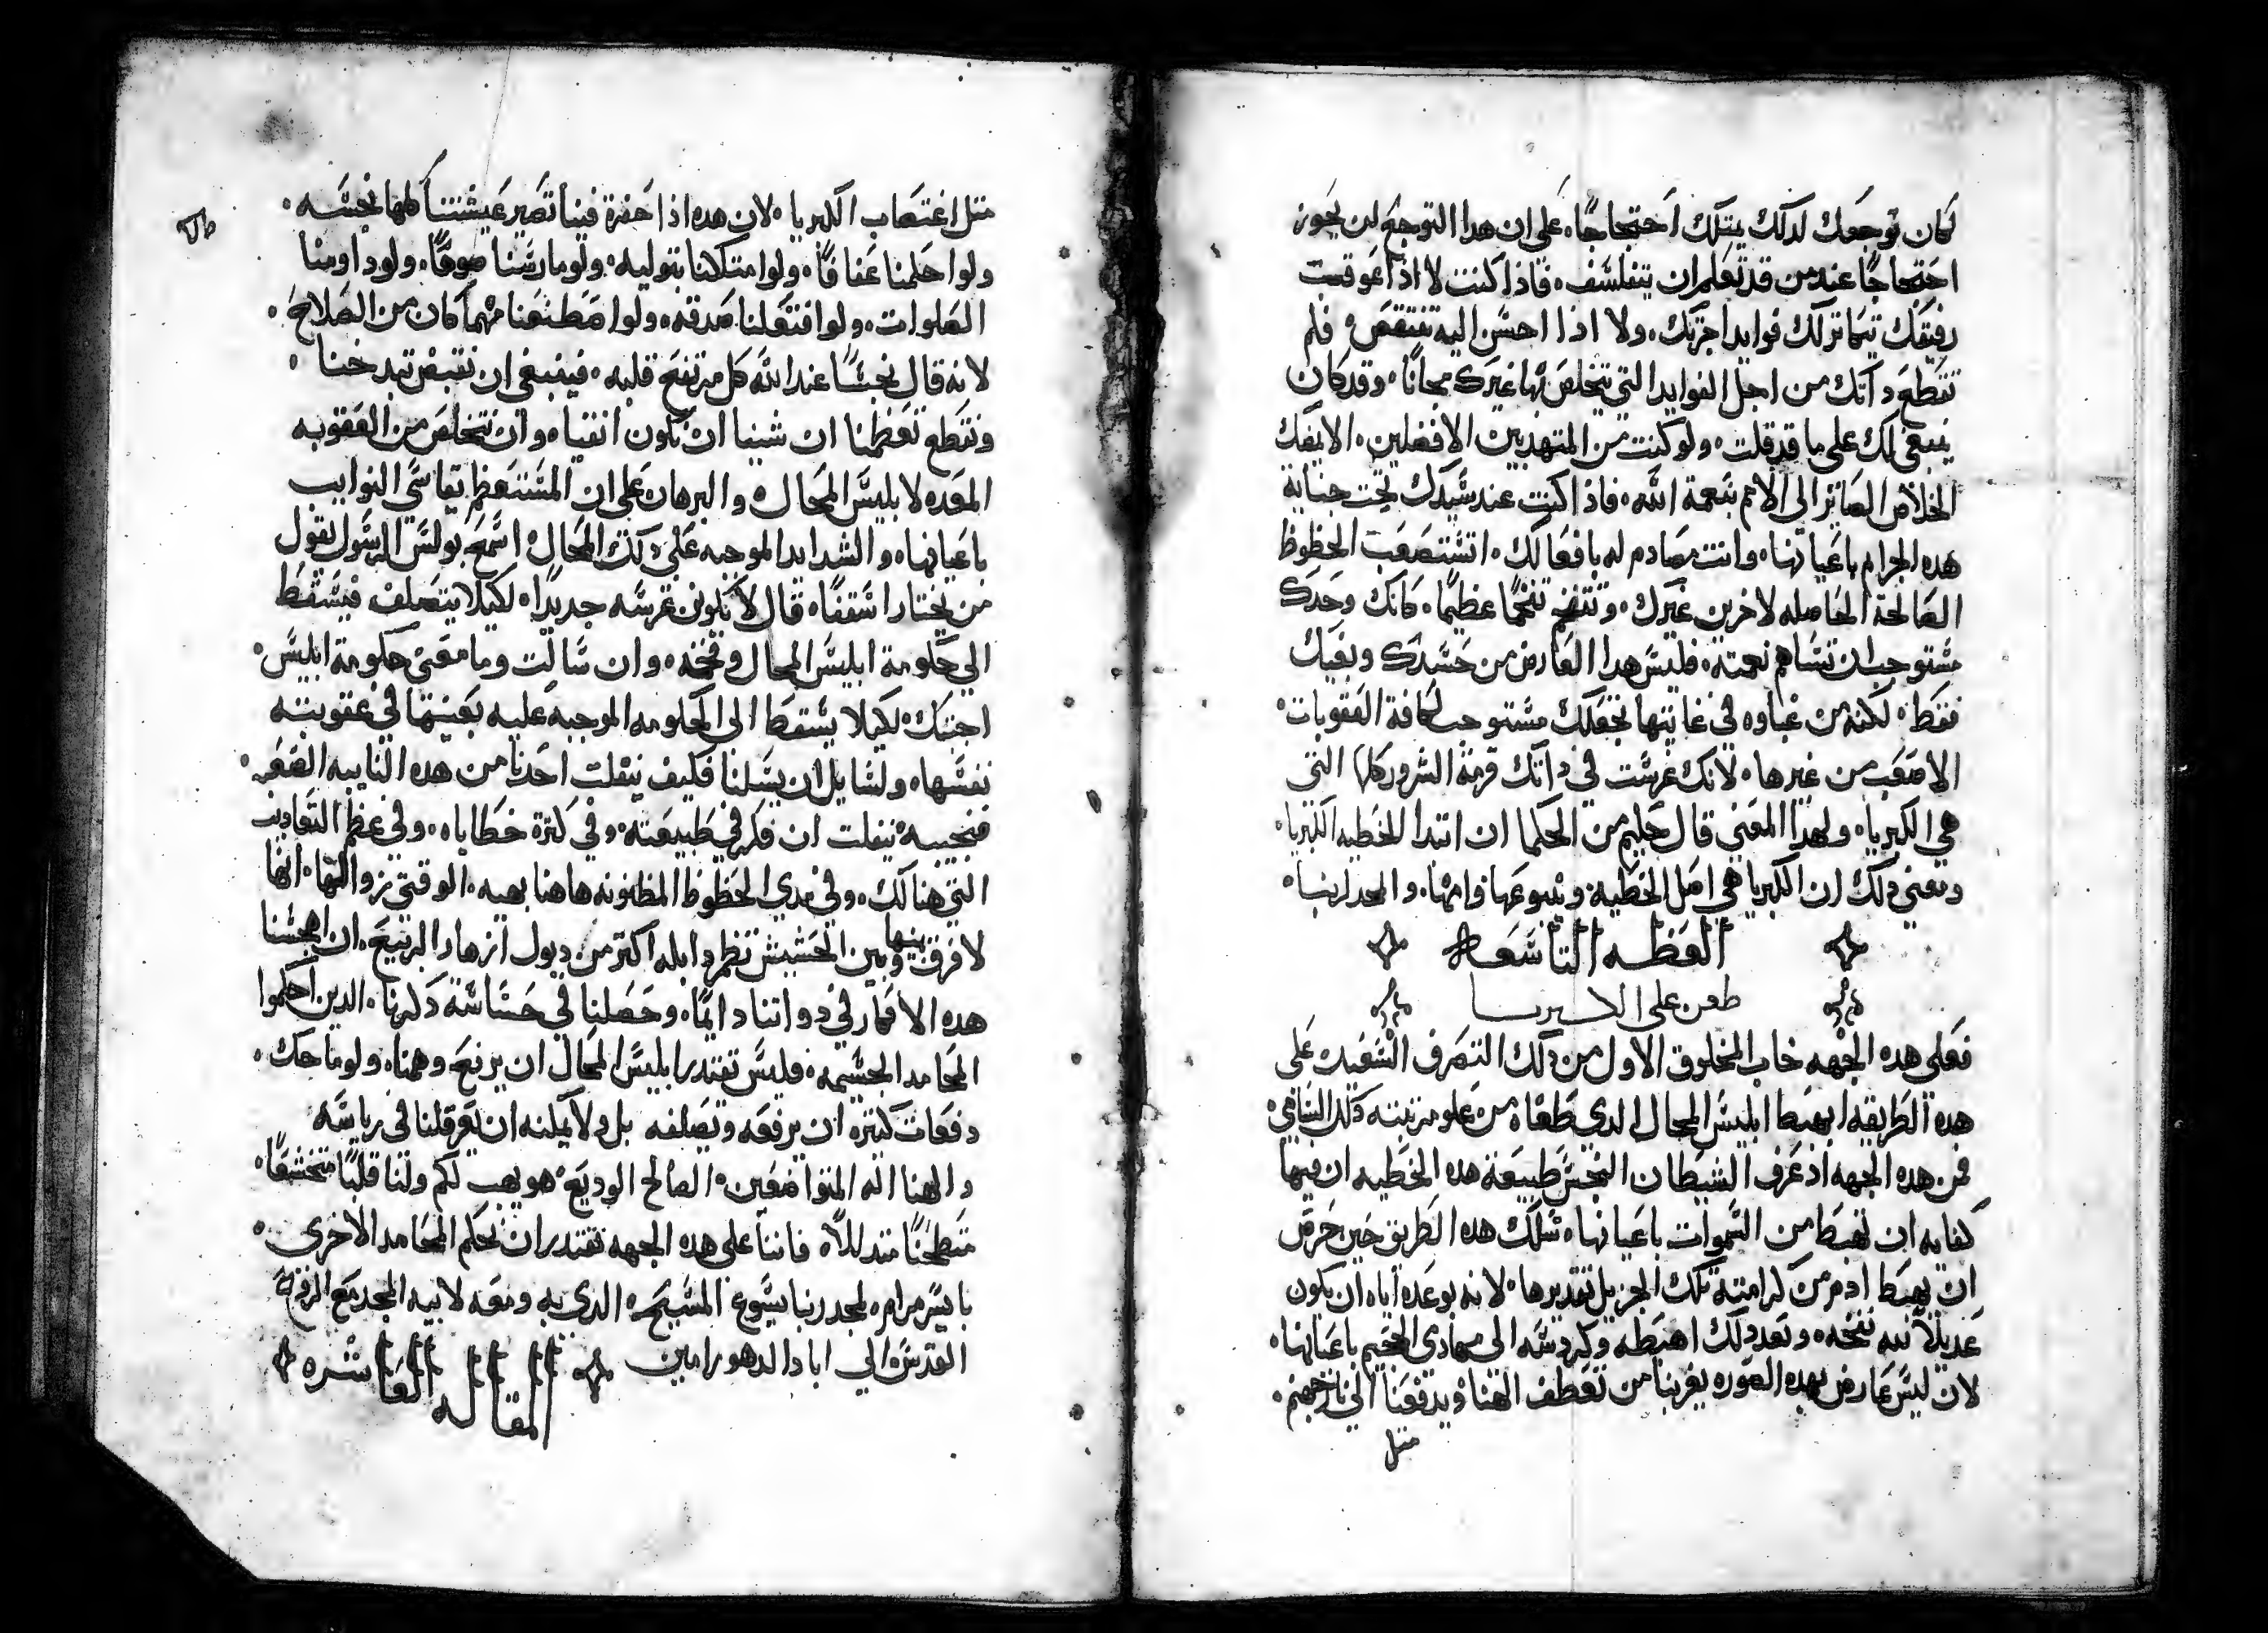 كان توجعك لدلك يمتلك احتجاجًا، على ان هدا التوجع لن يجوز
احتجاجًا عند من قد تعلم ان يتفلسف، فاذا كنت لا اذا عوقب
رفيقك تتماثر لك فوايد اجرتك، ولا اذا احسن اليه تنتقص، فلم
تقطع داتك من اجل الفوايد التي يتخلص بها غيرك مجانًا، وقد كان
ينبغي لك على ما قد قلت، ولو كنت من المتهذبين الافضلين، الا يفك
الخلاص الصاير الى الامم بنعمة الله، فاذا كنت عند سيدك تحت جناية
هده الجرايم باعيانها، وانت مصادم له بافعالك، اتستصعب الحظوظ
الصالحة الحاصله لاخرين غيرك، وتنتفخ تنفخًا عظيمًا، كانك وحدك
مستوجب ان تساهم نعمته، فليس هدا العارض من حسدك وبغيك
فقط، لكنه من غباوه في غايتها تجعلك مستوجب لكافة العقوبات،
الاصعب من غيرها، لانك غرست في داتك قرمة الشرور كلها التي
هي الكبريا، ولهدا المعنى قال حكيم من الحكما ان ابتدا الخطيه الكبريا،
ومعنى دلك ان الكبريا هي اصل الخطيه وينبوعها وامها، والمجد لربنا،
العظه التاسعه
طعن على الكبريا
فعلى هده الجهه خاب المخلوق الاول من دلك التصرف السعيد، على
هده الطريقه اهبط ابليس المحال الدي طغاه من علو مرتبته دلك السامي،
فمن هده الجهه اذ عرف الشيطان النجس طبيعة هده الخطيه ان فيها
كفايه ان تهبط من السموات باعيانها، سلك هده الطريق حين حرص
ان يهبط ادم من كرامته تلك الجزيل تقديرها، لانه بوعده اياه ان يكون
عديلًا لله نفخه، وبعد دلك اهبطه وكردسه الى مهاوي الجحيم باعيانها،
لان ليس عارض بهده الصوره يغربنا من تعطف الهنا، ويدفعنا الى نار جهنم،
متل
متل اغتصاب الكبريا، لان هده اذا حضرة فينا تصير عيشتنا كلها نجسه،
ولو احكمنا عفافًا، ولو امتلكنا بتوليه، ولو مارسنا صومًا، ولو داومنا
الصلوات، ولو افتعلنا صدقه، ولو اصطنعنا مهما كان من الصلاح،
لانه قال نجسًا عند الله كل مرتفع قلبه، فينبغي ان نقبض تبدخنا،
ونقطع تعظمنا ان شينا ان نكون انقيا، وان نتخلص من العقوبه
المعده لابليس المحال، والبرهان على ان المستعظم يقاسي النوايب
باعيانها، والشدايد الموجبه على دلك المحال، اسمع بولس الرسول يقول
من يختار اسقفًا، قال لا تكون غرسه جديدًا، لكيلا يتصلف فيسقط
الي حكومة ابليس المحال وفخه، وان سالت وما معنى حكومة ابليس،
اجبتك لكيلا يسقط الى الحكومه الموجبه عليه بعينها في عقوبته
نفسها، ولسايل ان يسلنا فكيف ينفلت احدنا من هده النايبه الصعبه،
فنجيبه ينفلت ان فكر في طبيعته، وفي كترة خطاياه، وفي عظم التعاديب
التي هنالك، وفي مدي الحظوظ المظنونه هاهنا بهيه، الوقتي زوالها، انها
لا فرق بينها وبين الحشيش تنظر دابله اكتر من دبول ازهار الربيع، ان اهجسنا
هده الافكار في دواتنا دايمًا، وحصلنا في حساسة دكرنا، الدين احكموا
المحامد الجسيمه، فليس تقتدر ابليس المحال ان يرفع وهمنا، ولو ماحك،
دفعات كتيره ان يرفعه ويصلفه بل ولا يمكنه ان يعرقلنا في رياسه
والهنا اله المتواضعين، الصالح الوديع، هو يهب لكم ولنا قلبًا متخشعًا،
متطحنًا متدللًا، فاننا على هده الجهه نقتدر ان نحكم المحامد الاخرى،
بايسر مرام، لمجد ربنا يسوع المسيح، الدي به ومعه لابيه المجد مع الروح
القدس، الي اباد الدهور امين
المقاله العاشره